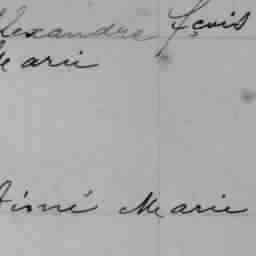 Alexandre fçois
Marie
Aimé Marie